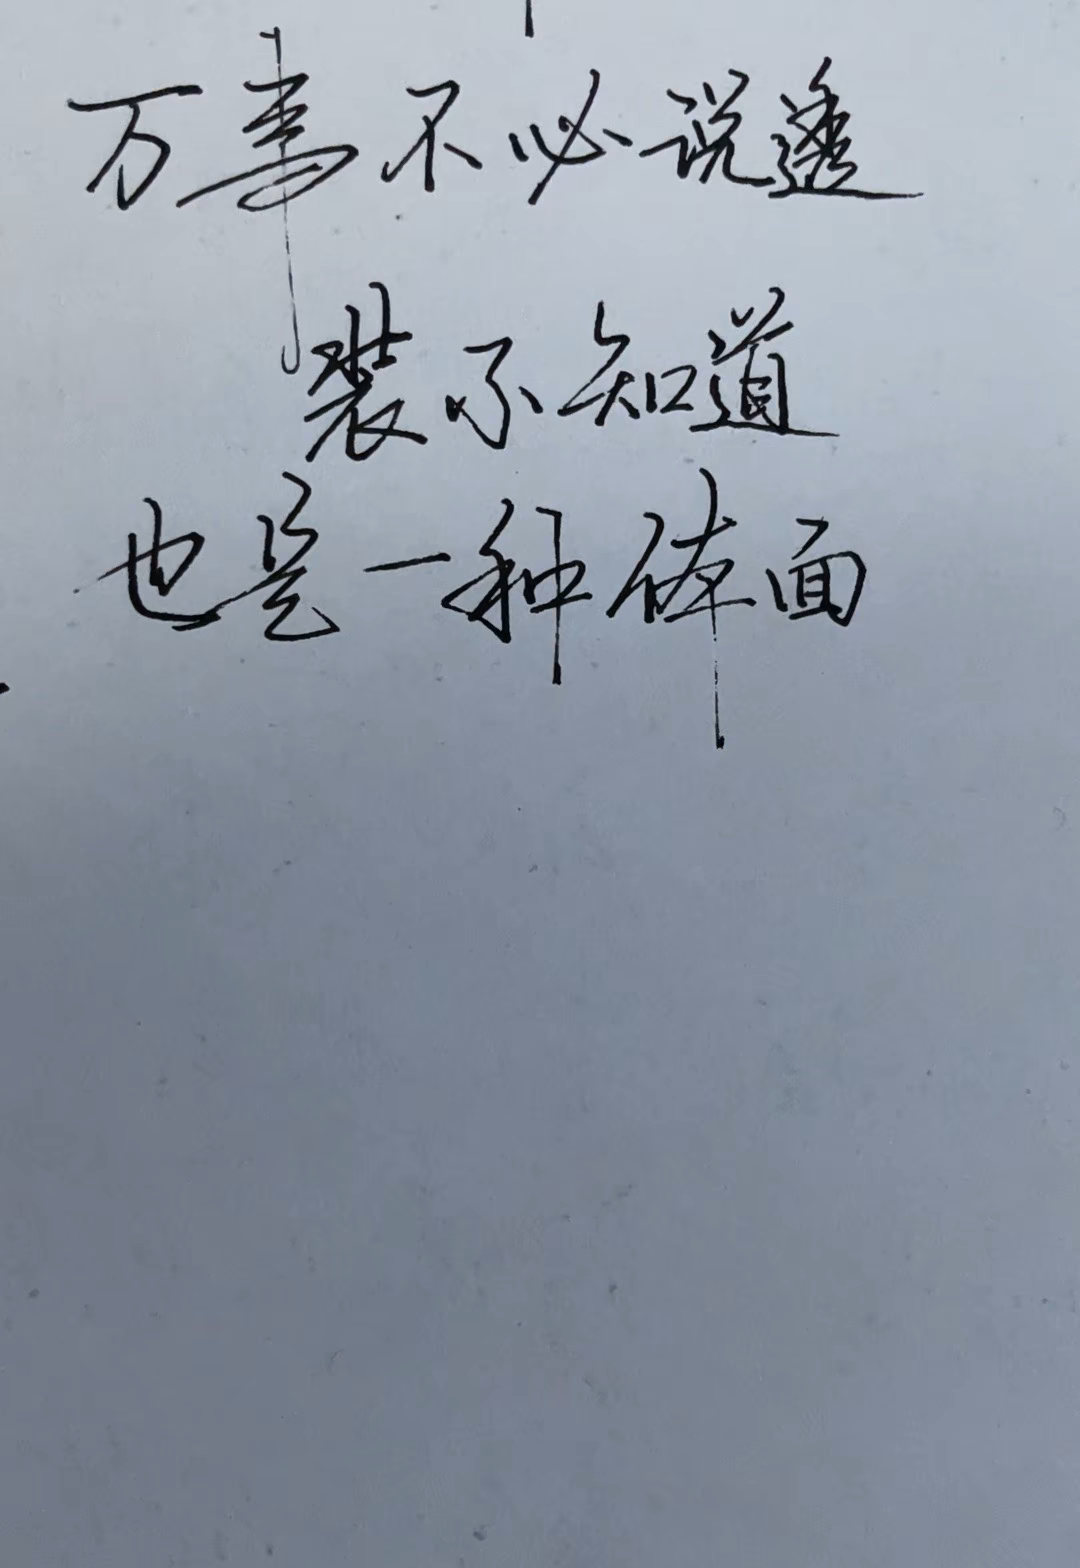 万事不必说透
装不知道
也是一种体面